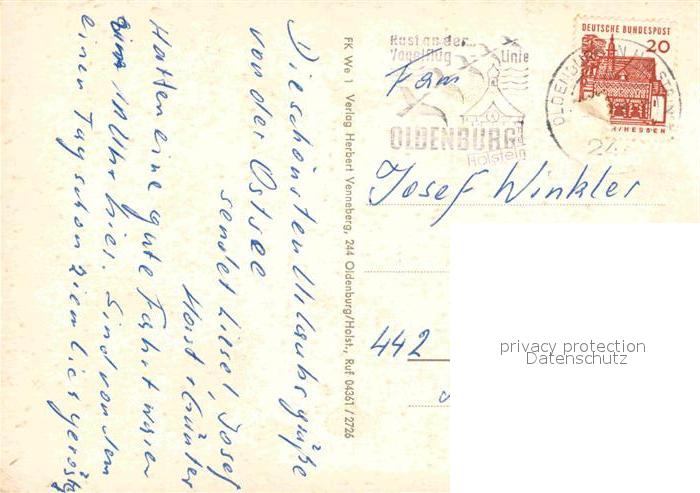 Die schönsten Urlaubsgrüße
von der Ostsee
sendet Liesel, Josef
Horst & Günter
Hatten eine gute Fahrt waren
um 10 Uhr hier. Sind von dem
einen Tag schon ziemlich geröstet
FK We 1 Verlag Herbert Venneberg, 244 Oldenburg/Holst., Ruf 04361/2726
Rast an der...
Vogelflug Linie
OLDENBURG
Holstein
DEUTSCHE BUNDESPOST
20
/HESSEN
OLDENBURG IN HOLSTEIN
Fam
Josef Winkler
442
privacy protection
Datenschutz